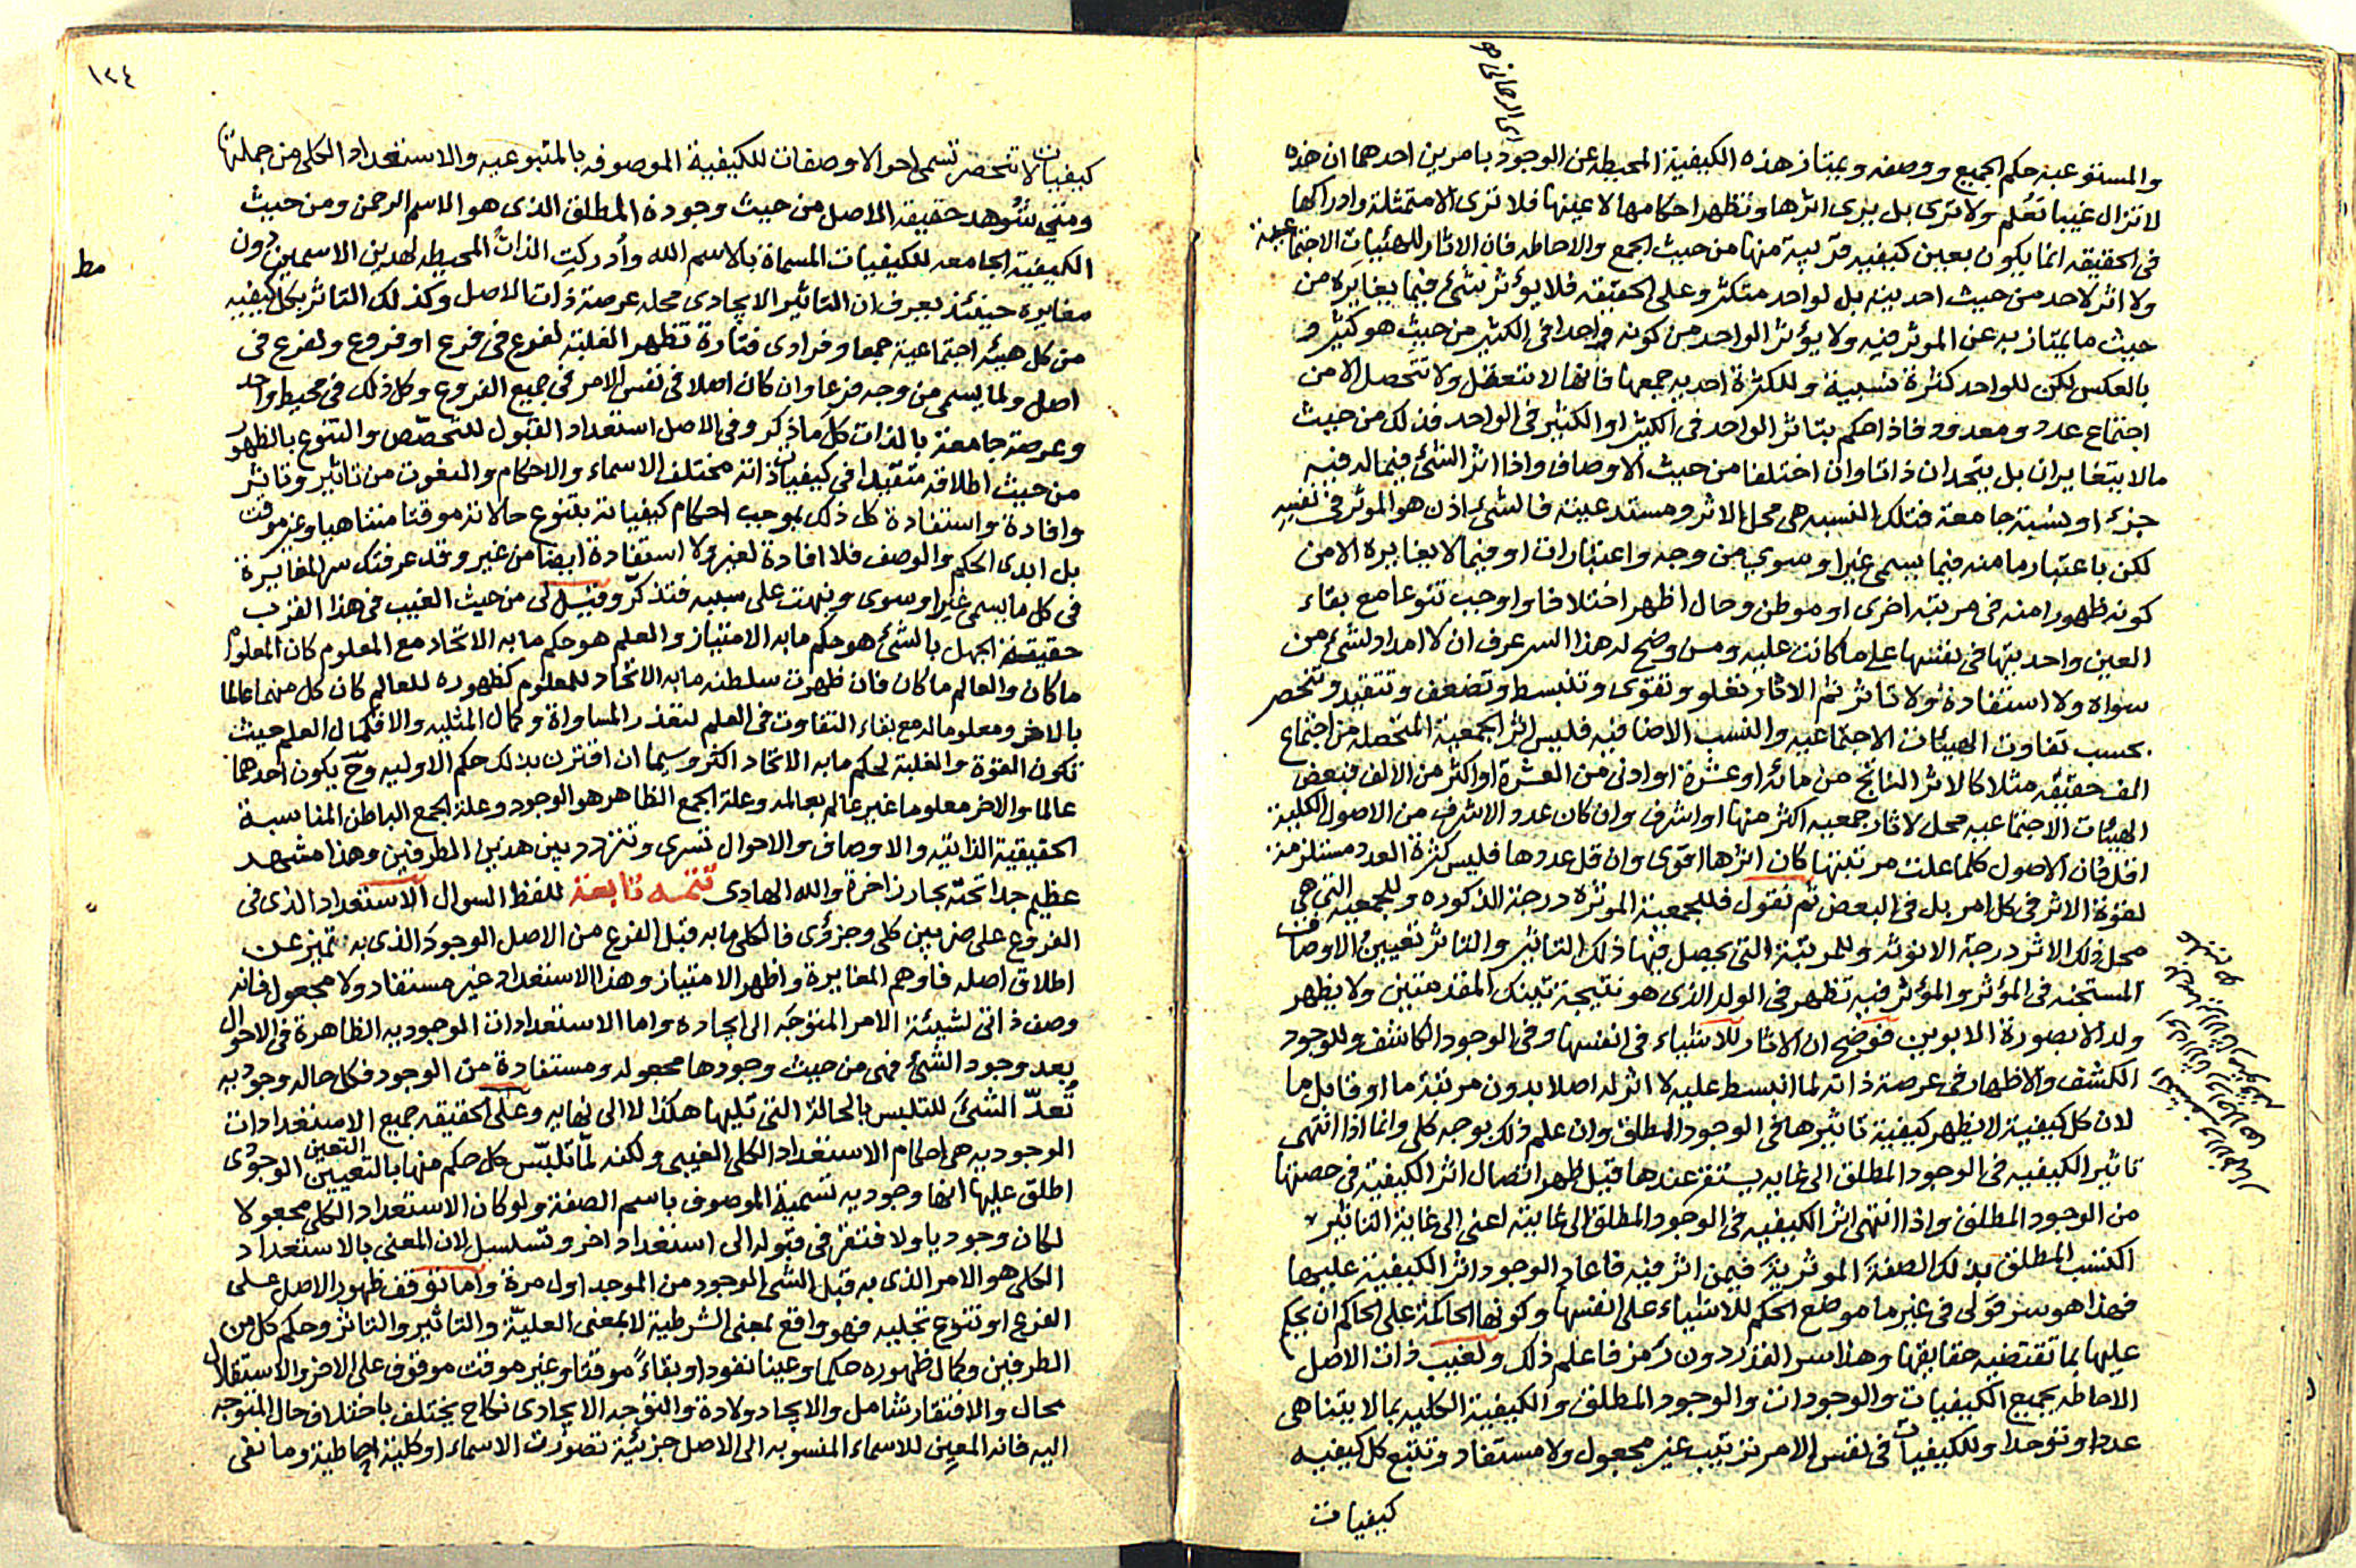 والمستوعبة حكم الجميع ووصفه ويمتاز هذه الكيفية المحيطة عن الوجود بامرين احدهما ان هذه
لا تزال غيبا تعلم ولا ترى بل يرى اثرها وتظهر احكامها لا عينها فلا ترى الا متمثلة وادراكها
فى الحقيقة انما يكون بعين كيفية قريبة منها من حيث الجمع والاحاطة فان الاثار للهيئات الاجتماعية
ولا اثر لاحد من حيث احديته بل لواحد متكثر وعلى الحقيقة فلا يؤثر شئ فيما يغايره من
حيث ما يمتاز به عن الموثر فيه ولا يؤثر الواحد من كونه واحدا فى الكثير من حيث هو كثير و
بالعكس لكن للواحد كثرة نسبية وللكثرة احدية جمعها فانها لا تتعقل ولا تتحصل الا من
اجتماع عدد ومعدود فاذا حكم بتاثر الواحد فى الكثير او الكثير فى الواحد فذلك من حيث
ما لا يتغايران بل يتحدان ذاتا وان اختلفا من حيث الاوصاف واذا اثر الشئ فيما له فيه
جزء او نسبة جامعة فتلك النسبة هى محل الاثر ومستدعيته فالشئ اذن هو الموثر فى نفسه
لكن باعتبار ما منه فيما يسمى غيرا وسوى من وجه واعتبارات او فيما لا يغايره الا من
كونه ظهورا منه فى مرتبة اخرى او موطن وحال اظهر اختلافا واوجب تنوعا مع بقاء
العين واحديتها فى نفسها على ما كانت عليه ومن وضح له هذا السر عرف ان لا امداد لشئ من
سواه ولا استفادة ولا تاثر ثم الاثار تعلو وتقوى وتنبسط وتضعف وتتقيد وتنحصر
بحسب تفاوت الهيئات الاجتماعية والنسب الاضافية فليس اثر الجمعية المتحصلة من اجتماع
الف حقيقة مثلا كالاثر الناتج من مائة او عشرة او ادنى من العشرة او اكثر من الالف فبعض
الهيئات الاجتماعية محل لاثار جمعية اكثر منها او اشرف وان كان عدد الاشرف من الاصول الكلية
اقل فان الاصول كلما علت مرتبتها كان اثرها اقوى وان قل عددها فليس كثرة العدد مستلزمة
لقوة الاثر فى كل امر بل فى البعض ثم نقول فللجمعية الموثرة درجة الذكورة وللجمعية التى هى
محل ذلك الاثر درجة الانوثة وللمرتبة التى يحصل فيها ذلك التاثير والتاثر تعيين الاوصاف
المستجنة فى المؤثر والمؤثر فيه تظهر فى الولد الذى هو نتيجة تينك المقدمتين ولا يظهر
ولد الا بصورة الابوين فوضح ان الاثار للاشياء فى انفسها وفى الوجود الكاشف وللوجود
الكشف والاظهار فى عرصة ذاته لما انبسط عليه لا اثر له اصلا بدون مرتبة ما او قابل ما
لان كل كيفية لا يظهر كيفية تاثيرها فى الوجود المطلق وان علم ذلك بوجه كلى وانما اذا انتهى
تاثير الكيفية فى الوجود المطلق الى غاية يستقر عندها قبل ظهر اتصال اثر الكيفية فى حصتها
من الوجود المطلق واذا انتهى اثر الكيفية فى الوجود المطلق الى غايته اعنى الى غاية التاثير
اكتسب المطلق بذلك الصفة الموثرية فيمن اثر فيه فاعاد الوجود اثر الكيفية عليها
فهذا هو سر قولى فى غير ما موضع الحكم للاشياء على انفسها وكونها الحاكمة على الحاكم ان يحكم
عليها بما تقتضيه حقايقها وهذا سر القدر دون رمز فاعلم ذلك ولغيب ذات الاصل
الاحاطة بجميع الكيفيات والوجودات والوجود المطلق والكيفية الكلية بما لا يتناهى
عددا وتوحدا وللكيفيات فى نفس الامر ترتيب غير مجعول ولا مستفاد وتتبع كل كيفية
كيفيات
١٢٤
كيفيات لا تنحصر تسمى احوالا وصفات للكيفية الموصوفة بالمتبوعية والاستعداد الكلى من جملتها
ومتى شوهد حقيقة الاصل من حيث وجوده المطلق الذى هو الاسم الرحمن ومن حيث
الكيفية الجامعة للكيفيات المسماة بالاسم الله وادركت الذات المحيطة لهذين الاسمين دون
مغايرة حينئذ يعرف ان التاثير الايجادى محله عرصة ذات الاصل وكذلك التاثر بكل كيفية
من كل هيئة اجتماعية جمعا وفرادى فتارة تظهر الغلبة لفرع فى فرع او فروع ولفرع فى
اصل ولما يسمى من وجه فرعا وان كان اصلا فى نفس الامر فى جميع الفروع وكل ذلك فى محيط واحد
وعرصة جامعة بالذات كل ما ذكر وفى الاصل استعداد القبول للتخصص والتنوع بالظهور
من حيث اطلاقه متقيدا فى كيفيات ذاته مختلف الاسماء والاحكام والنعوت من تاثير وتاثر
وافادة واستفادة كل ذلك بموجب احكام كيفياته بتنوع حالاته موقتا متناهيا وغير موقت
بل ابدى الحكم والوصف فلا افادة لغيره ولا استفادة ايضا من غير وقد عرفتك سر المغايرة
فى كل ما يسمى غيرا وسوى ونبهت على سببه فتذكر وقيل لى من حيث الغيب فى هذا القرب
حقيقة الجهل بالشئ هو حكم ما به الامتياز والعلم هو حكم ما به الاتحاد مع المعلوم كان المعلوم
ما كان والعالم ما كان فان ظهرت سلطنة ما به الاتحاد للمعلوم كظهوره للعالم كان كل منهما عالما
بالاخر ومعلوما له مع بقاء التفاوت فى العلم لتعذر المساواة وكمال المثلية والا فكمال العلم حيث
تكون القوة والغلبة لحكم ما به الاتحاد اكثر وسيما ان اقترن بذلك حكم الاولية وح يكون احدهما
عالما والاخر معلوما غير عالم بعالمه وعلة الجمع الظاهر هو الوجود وعلة الجمع الباطن المناسبة
الحقيقية الذاتية والاوصاف والاحوال تسرى وتتردد بين هذين الطرفين وهذا مشهد
عظيم جدا تحته بحار زاخرة والله الهادى تتمه تابعة للفظ السوال الاستعداد الذى فى
الفروع على ضربين كلى وجزؤى فالكلى ما به قبل الفرع من الاصل الوجود الذى به تميز عن
اطلاق اصله فاوهم المغايرة واظهر الامتياز وهذا الاستعداد غير مستفاد ولا مجعول فانه
وصف ذاتى لشيئة الامر المتوجه الى ايجاده واما الاستعدادات الوجودية الظاهرة فى الاحوال
بعد وجود الشئ فهى من حيث وجودها مجعولة ومستفادة من الوجود فكل حالة وجودية
تعد الشئ للتلبس بالحالة التى تليها هكذا لا الى نهاية وعلى الحقيقة جميع الاستعدادات
الوجودية هى احكام الاستعداد الكلى الغيبى ولكنه لما تلبس كل حكم منها بالتعيين التعين الوجودى
اطلق عليها انها وجودية تسمية الموصوف باسم الصفة ولو كان الاستعداد الكلى مجعولا
لكان وجوديا ولافتقر فى قبوله الى استعداد اخر وتسلسل لان المعنى بالاستعداد
الكلى هو الامر الذى به قبل الشئ الوجود من الموجد اول مرة واما توقف ظهور الاصل على
الفرع او تنوع تجليه فهو واقع بمعنى الشرطية لا بمعنى العلية والتاثير والتاثر وحكم كل من
الطرفين وكمال ظهوره حكما وعينا نفوذا وبقاء موقتا وغير موقت موقوف على الاخر والاستقلال
محال والافتقار شامل والايجاد ولادة والتوجه الايجادى نكاح يختلف باختلاف حال المتوجه
اليه فانه المعين للاسماء المنسوبة الى الاصل جزئية تصورت الاسماء او كلية احاطية وما بقى